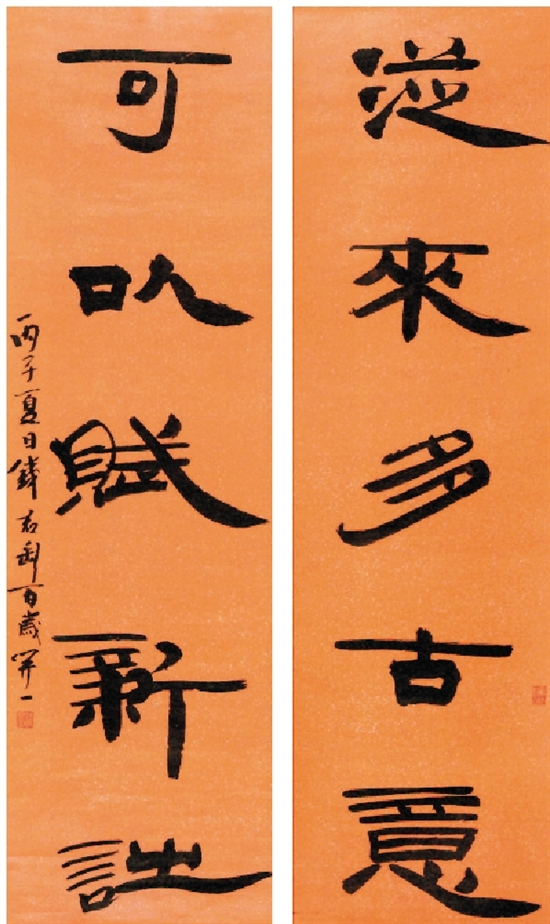 從來多古意
可以賦新詩
丙子夏日錢君匋百歲